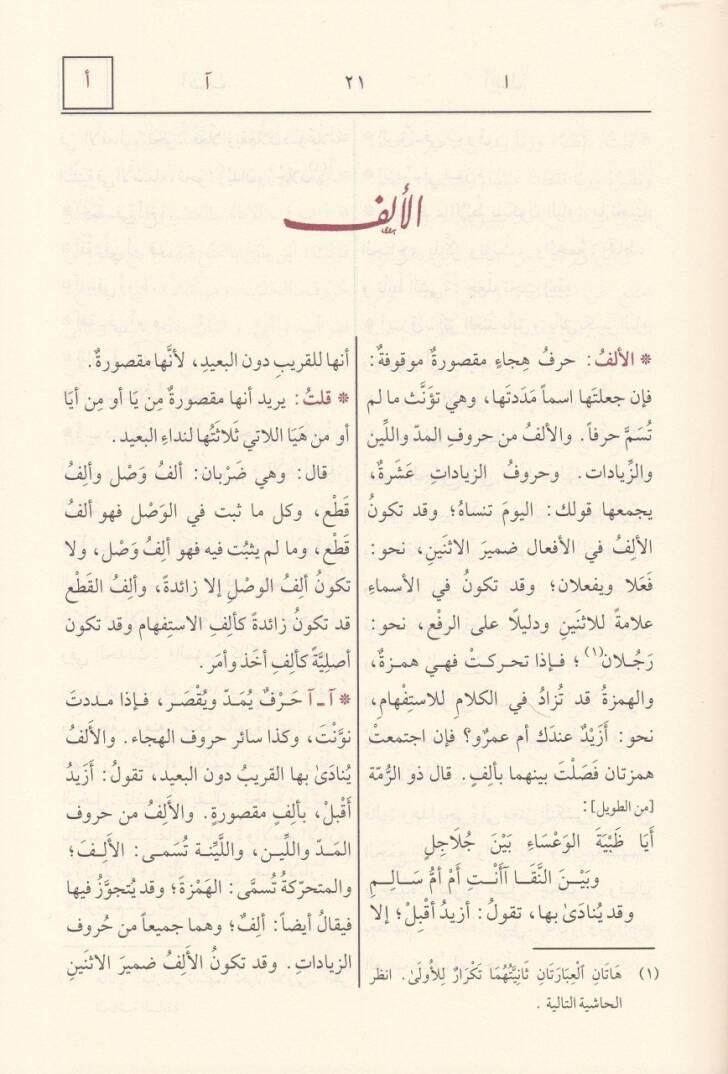 ا ٢١ آ أ
الألف
* الألفُ: حرفُ هِجاءٍ مقصورةٌ موقوفةٌ:
فإن جعلتَها اسماً مَدَدتَها، وهي تؤنَّث ما لم
تُسَمَّ حرفاً. والألفُ من حروفِ المدّ واللِّين
والزِّيادات. وحروفُ الزياداتِ عَشَرةٌ،
يجمعها قولك: اليومَ تنساهُ؛ وقد تكونُ
الألِفُ في الأفعال ضميرَ الاثنَينِ، نحو:
فَعَلا ويفعلان؛ وقد تكونُ في الأسماءِ
علامةً للاثنَينِ ودليلاً على الرفْع، نحو:
رَجُلان(١)؛ فـإذا تحـركـتْ فهـي همـزةٌ،
والهمزةُ قد تُزادُ في الكلامِ للاستِفْهامِ،
نحو: أَزَيْدٌ عندَك أم عمرٌو؟ فإن اجتمعتْ
همزتان فَصَلْتَ بينهما بألِفٍ. قال ذو الرُمّة
[من الطويل]:
أَيَا ظَبْيَةَ الوَعْسَاءِ بَيْنَ جُلَاجِلٍ
وبَيْـنَ النَّقَـا آأَنْـتِ أمْ أُمُّ سَـالِـمِ
وقد يُنادَىٰ بها، تقولُ: أزيدُ أقْبِلْ؛ إلا
(١) هَاتَانِ العِبَارَتَانِ ثَانِيَتُهُمَا تَكْرَارٌ لِلأُولَىٰ. انظر
الحاشية التالية.
أنها للقريبِ دون البعيدِ، لأنَّها مقصورةٌ.
* قلتُ: يريد أنها مقصورةٌ مِن يَا أو مِن أيَا
أو من هَيَا اللاتي ثَلاثَتُها لنداءِ البعيد.
قال: وهي ضَرْبان: ألفُ وَصْل وألِفُ
قَطْع، وكل ما ثبت في الوَصْل فهو ألفُ
قَطْع، وما لم يثبُت فيه فهو ألِفُ وَصْل، ولا
تكونُ ألِفُ الوصْلِ إلا زائدةً، وألِفُ القَطْع
قد تكونُ زائدةً كألِفِ الاستِفْهام وقد تكون
أصليَّةً كألِفِ أخَذ وأمَر.
* آ ـ آ حَرْفٌ يُمَـدّ ويُقْصَـر، فـإذا مـددتَ
نوَّنْتَ، وكذا سائر حروف الهجاء. والأَلفُ
يُنادَىٰ بها القريبُ دون البعيد، تقولُ: أَزَيدُ
أَقْبِلْ، بألِفٍ مقصورةٍ. والألِفُ من حروف
المَـدّ واللِّيـن، واللَّيِّنـة تُسَمـى: الأَلِـفَ؛
والمتحرّكةُ تُسمَّى: الهَمْزةَ؛ وقد يُتجوَّزُ فيها
فيقالُ أيضاً: ألِفٌ؛ وهما جميعاً من حُروف
الزياداتِ. وقد تكونُ الأَلِفُ ضميرَ الاثنَينِ